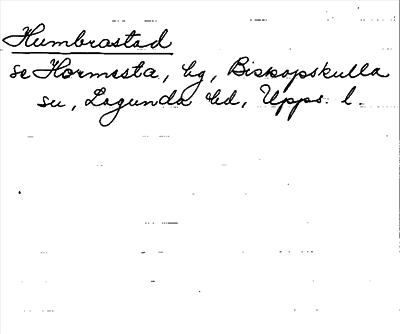 Humbrastad
se Hormesta, hg, Biskopskulla
su, Lagunda hd, Upps. l.